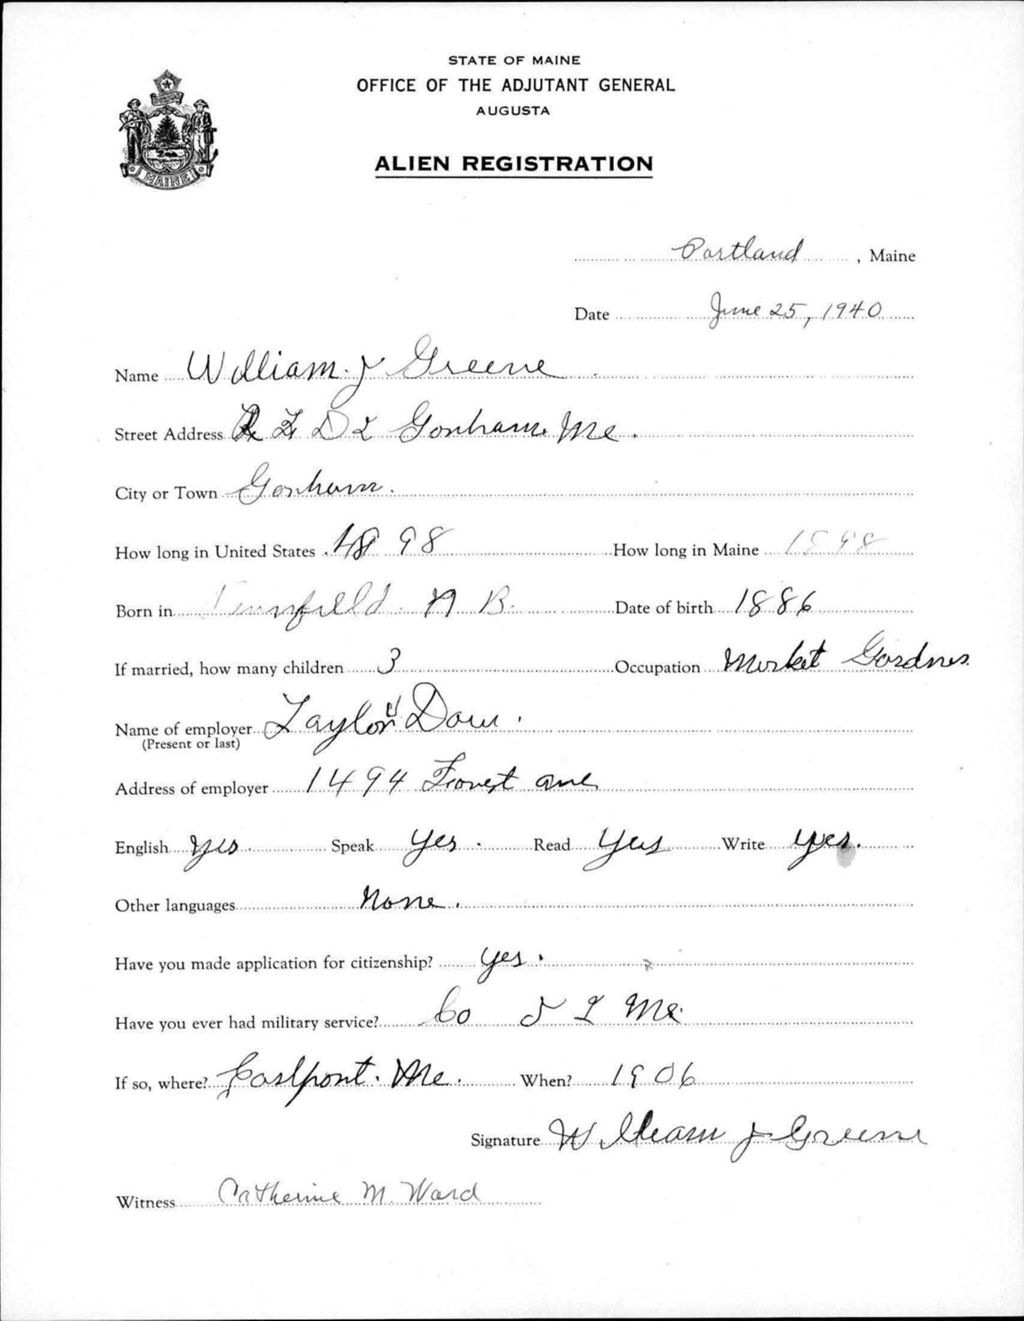 STATE OF MAINE
OFFICE OF THE ADJUTANT GENERAL
AUGUSTA
MAINE
ALIEN REGISTRATION
Portland, Maine
Date June 25, 1940
Name William J Greene
Street Address R F D 2 Gorham. Me.
City or Town Gorham.
How long in United States 1898 How long in Maine 1898
Born in N B. Date of birth 1886
If married, how many children 3 Occupation Market Gardner
Name of employer Taylor Dow.
(Present or last)
Address of employer 1494 Forest ave
English yes. Speak yes. Read yes Write yes.
Other languages None.
Have you made application for citizenship? yes.
Have you ever had military service? Co Me.
If so, where? Eastport. Me. When? 1906
Signature William J Greene
Witness Catherine M. Ward